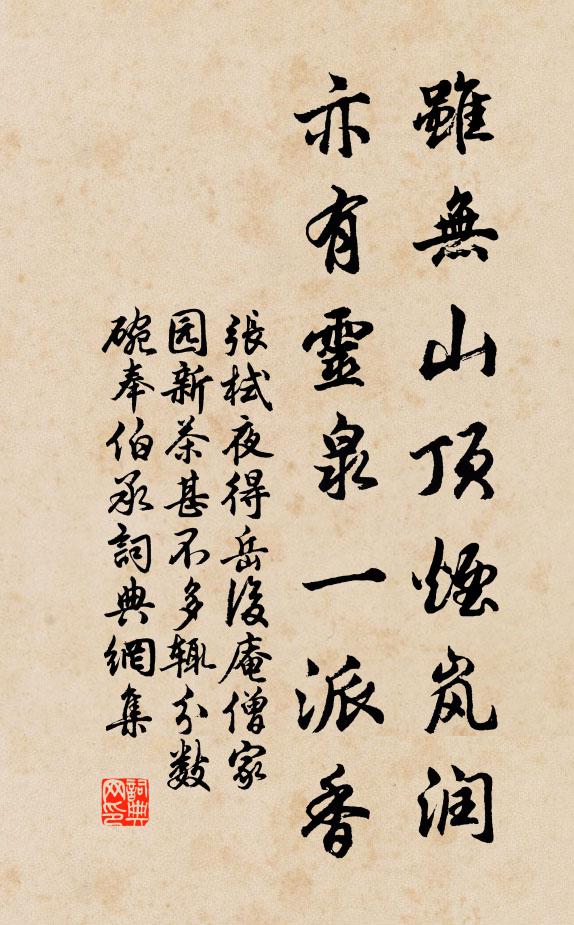 雖無山頂煙岚润
亦有靈泉一派香
張栻夜得岳後庵僧家
园新茶甚不多辄分数
碗奉伯承詞典網集
詞典
网印